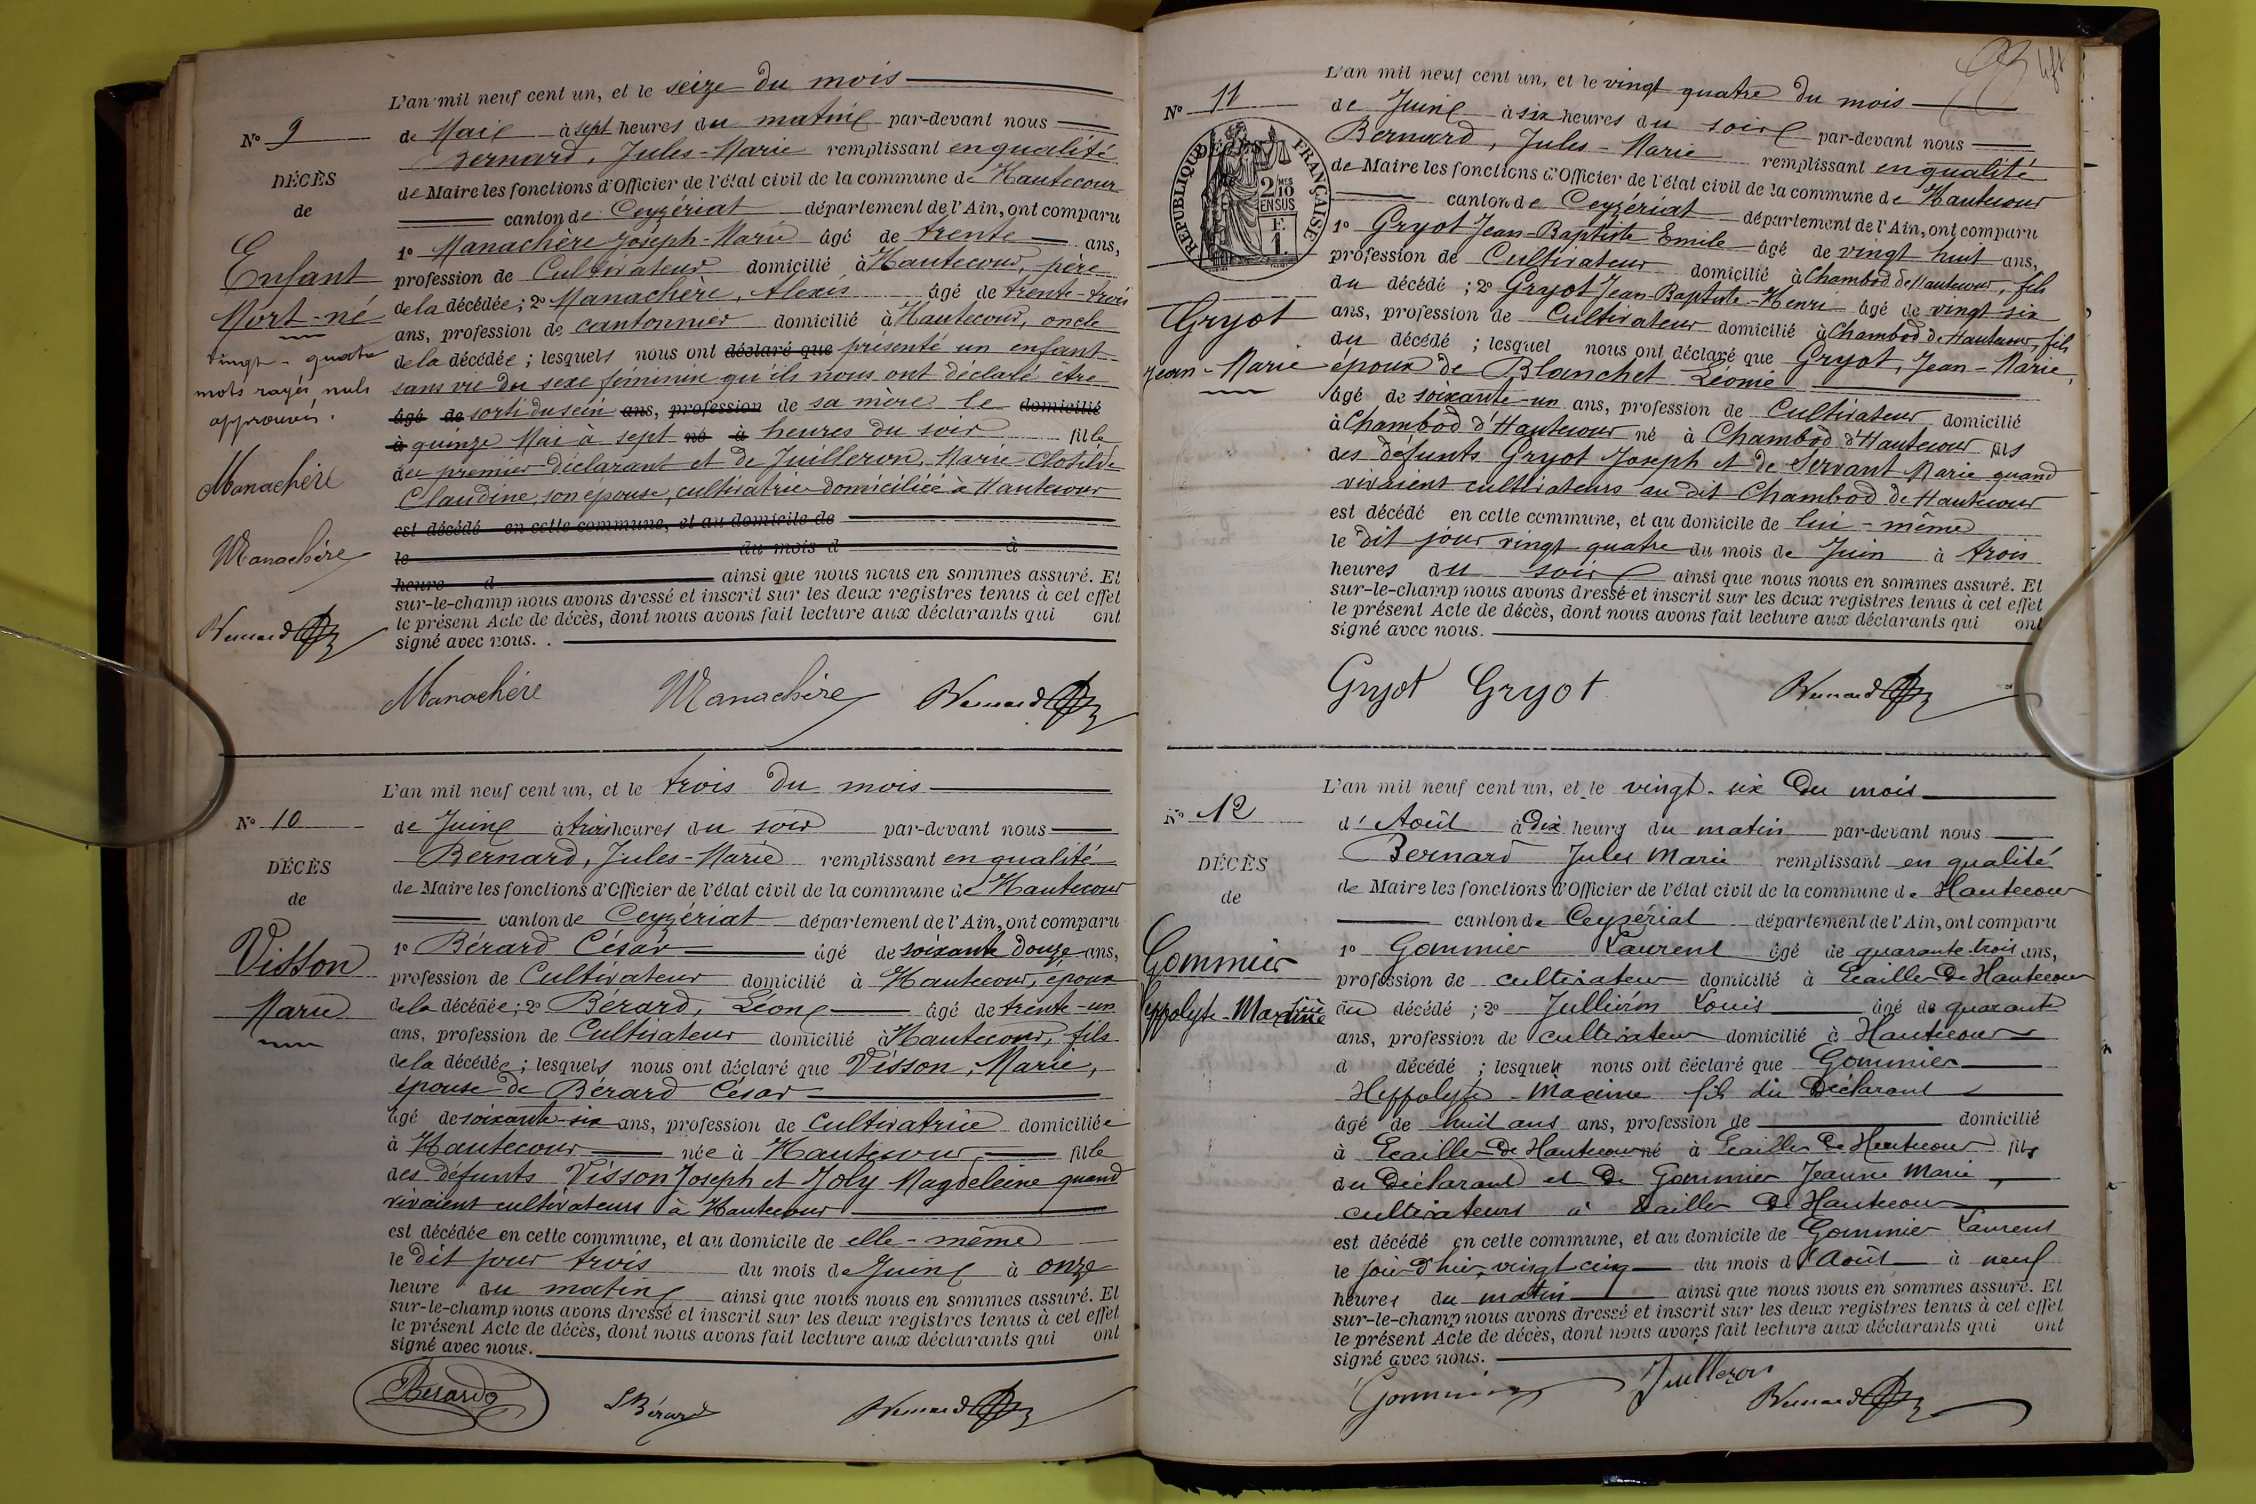 L'an mil neuf cent un, et le seize du mois
N° 9
de Mai à sept heures du matin par-devant nous
Bernard, Jules-Marie remplissant en qualité
DÉCÈS
de Maire les fonctions d'Officier de l'état civil de la commune de Hautecour
de
canton de Ceyzériat département de l'Ain, ont comparu
1° Manachère Joseph-Marie âgé de trente ans,
Enfant
profession de Cultivateur domicilié à Hautecour, père
Mort-né
de la décédée; 2° Manachère, Alexis âgé de trente-trois
ans, profession de cantonnier domicilié à Hautecour, oncle
vingt-quatre
de la décédée; lesquels nous ont déclaré que présenté un enfant
mots rayés nuls
sans vie du sexe féminin qu'ils nous ont déclaré être
approuvés.
âgé de sorti du sein ans, profession de sa mère le domicilié
à quinze Mai à sept né à heures du soir fille
du premier déclarant et de Juilleron, Marie-Clotilde
Manachère
Claudine, son épouse, cultivatrice domiciliée à Hautecour
est décédé en cette commune, et au domicile de
Manachère
le du mois d à
heure d ainsi que nous nous en sommes assuré. Et
sur-le-champ nous avons dressé et inscrit sur les deux registres tenus à cet effet
Bernard
le présent Acte de décès, dont nous avons fait lecture aux déclarants qui ont
signé avec nous.
Manachère Manachère Bernard
L'an mil neuf cent un, et le trois du mois
N° 10
de Juin à trois heures du soir par-devant nous
Bernard, Jules-Marie remplissant en qualité
DÉCÈS
de Maire les fonctions d'Officier de l'état civil de la commune de Hautecour
de
canton de Ceyzériat département de l'Ain, ont comparu
1° Bérard César âgé de soixante douze ans,
Visson
profession de Cultivateur domicilié à Hautecour, époux
Marie
de la décédée; 2° Bérard, Léon âgé de trente-un
ans, profession de Cultivateur domicilié à Hautecour, fils
de la décédée; lesquels nous ont déclaré que Visson, Marie,
épouse de Bérard César
âgé de soixante-six ans, profession de Cultivatrice domiciliée
à Hautecour née à Hautecour fille
des défunts Visson Joseph et Joly Magdeleine quand
vivaient cultivateurs à Hautecour
est décédée en cette commune, et au domicile de elle-même
le dit jour trois du mois de Juin à onze
heure du matin ainsi que nous nous en sommes assuré. Et
sur-le-champ nous avons dressé et inscrit sur les deux registres tenus à cet effet
le présent Acte de décès, dont nous avons fait lecture aux déclarants qui ont
signé avec nous.
Bérard L Bérard Bernard
L'an mil neuf cent un, et le vingt quatre du mois
N° 11
de Juin à six heures du soir par-devant nous
Bernard, Jules-Marie remplissant en qualité
de Maire les fonctions d'Officier de l'état civil de la commune de Hautecour
RÉPUBLIQUE FRANÇAISE
2/10 MES EN SUS
F. 1
canton de Ceyzériat département de l'Ain, ont comparu
1° Gryot Jean-Baptiste Emile âgé de vingt huit ans,
profession de Cultivateur domicilié à Chambod de Hautecour, fils
du décédé; 2° Gryot Jean-Baptiste-Henri âgé de vingt six
Gryot
ans, profession de Cultivateur domicilié à Chambod de Hautecour, fils
du décédé; lesquel nous ont déclaré que Gryot, Jean-Marie,
Jean-Marie
époux de Blanchet Léonie
âgé de soixante-un ans, profession de Cultivateur domicilié
à Chambod d'Hautecour né à Chambod d'Hautecour fils
des défunts Gryot Joseph et de Servant Marie quand
vivaient cultivateurs au dit Chambod de Hautecour
est décédé en cette commune, et au domicile de lui-même
le dit jour vingt quatre du mois de Juin à trois
heures du soir ainsi que nous nous en sommes assuré. Et
sur-le-champ nous avons dressé et inscrit sur les deux registres tenus à cet effet
le présent Acte de décès, dont nous avons fait lecture aux déclarants qui ont
signé avec nous.
Gryot Gryot Bernard
L'an mil neuf cent un, et le vingt-six du mois
N° 12
d'Août à Dix heures du matin par-devant nous
Bernard Jules Marie remplissant en qualité
DÉCÈS
de Maire les fonctions d'Officier de l'état civil de la commune de Hautecour
de
canton de Ceyzériat département de l'Ain, ont comparu
Gommier
1° Gommier Laurent âgé de quarante-trois ans,
profession de cultivateur domicilié à Ecailler de Hautecour
père
du décédé; 2° Jullieron Louis âgé de quarante
ans, profession de cultivateur domicilié à Hautecour
d décédé; lesquels nous ont déclaré que Gommier
Hyppolyte-Maxime fils du Déclarant
âgé de huit ans ans, profession de domicilié
à Ecailler de Hautecour né à Ecailler de Hautecour fils
du Déclarant et de Gommier Jeanne Marie,
cultivateurs à Ecailler de Hautecour
est décédé en cette commune, et au domicile de Gommier Laurent
le jour d'hier, vingt cinq du mois d'Août à neuf
heures du matin ainsi que nous nous en sommes assuré. Et
sur-le-champ nous avons dressé et inscrit sur les deux registres tenus à cet effet
le présent Acte de décès, dont nous avons fait lecture aux déclarants qui ont
signé avec nous.
Gommier Juilleron Bernard